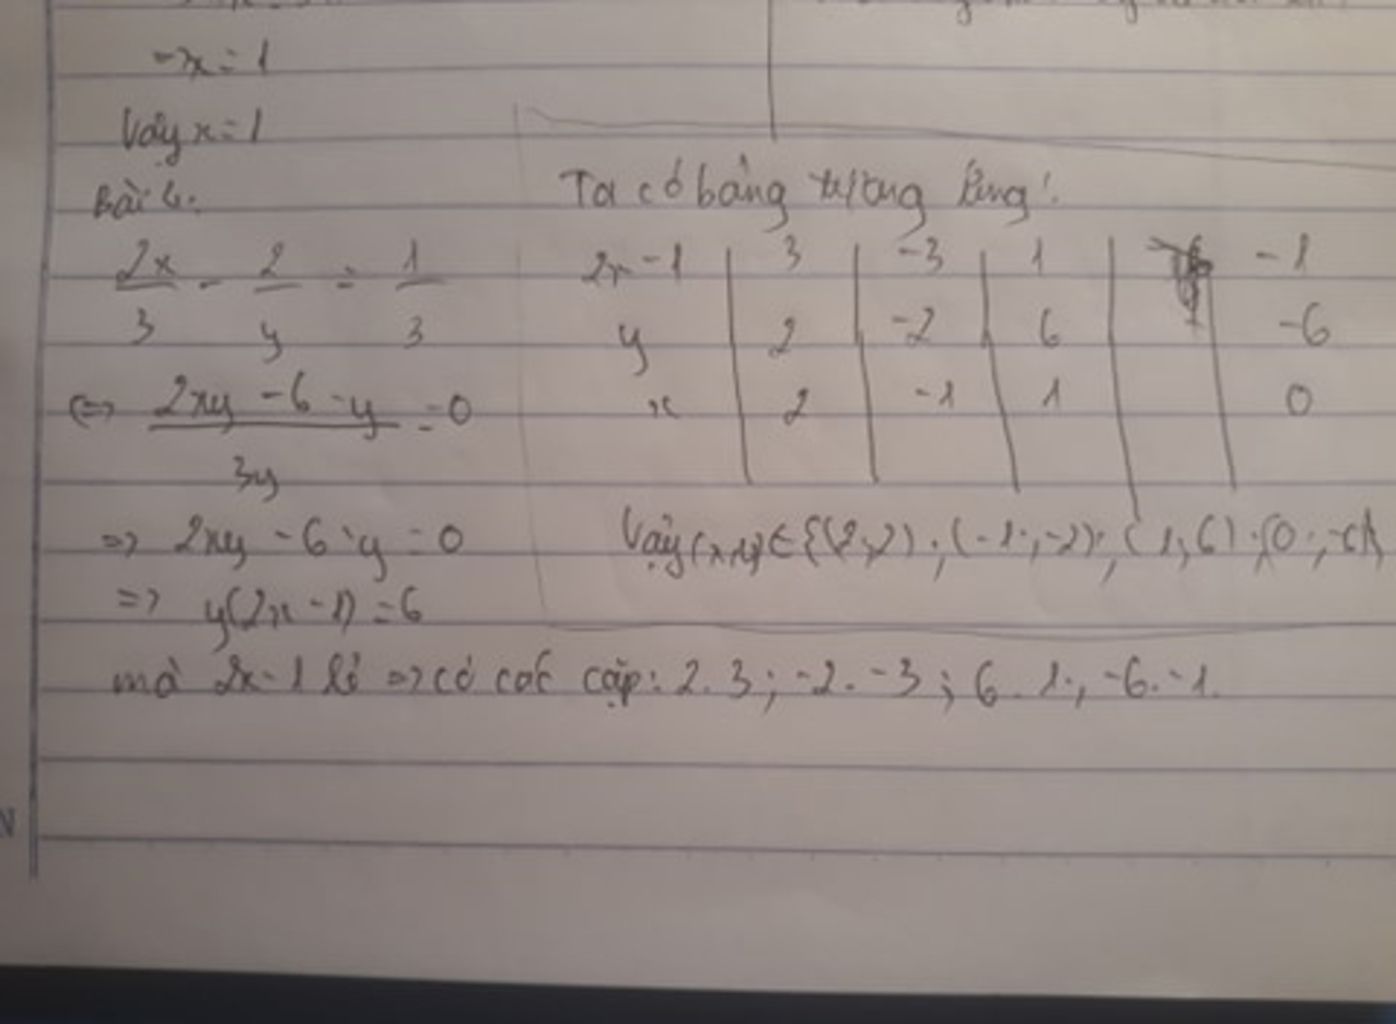 -> x = 1
Vậy x = 1
Bài 4.
2x/3 - 2/y = 1/3
<=> (2xy - 6 - y)/3y = 0
=> 2xy - 6 - y = 0
=> y(2x - 1) = 6
mà 2x - 1 lẻ => có các cặp: 2. 3; -2. -3; 6. 1; -6. -1.
Ta có bảng tương ứng:
2x - 1 | 3 | -3 | 1 | -1
y | 2 | -2 | 6 | -6
x | 2 | -1 | 1 | 0
Vậy (x,y) ∈ {(2;2); (-1;-2); (1;6); (0;
N